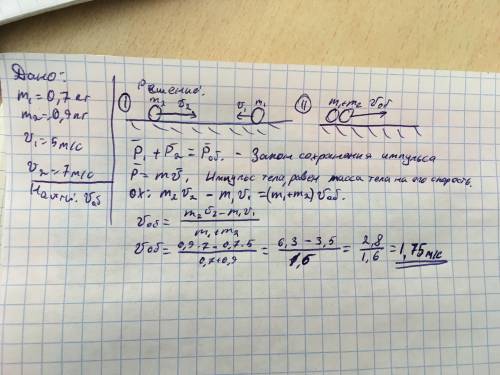 Дано:
m₁ = 0,7 кг
m₂ = 0,9 кг
v₁ = 5 м/с
v₂ = 7 м/с
Найти: vоб
Решение:
I m₂ v₂ v₁ m₁ II m₁+m₂ vоб
p̄₁ + p̄₂ = p̄об. - Закон сохранения импульса
p = mv̄. Импульс тела, равен масса тела на его скорость.
ОХ: m₂v₂ - m₁v₁ = (m₁+m₂) vоб.
vоб = (m₂v₂ - m₁v₁) / (m₁+m₂)
vоб = (0,9·7 - 0,7·5) / (0,7+0,9) = (6,3 - 3,5) / 1,6 = 2,8 / 1,6 = 1,75 м/с